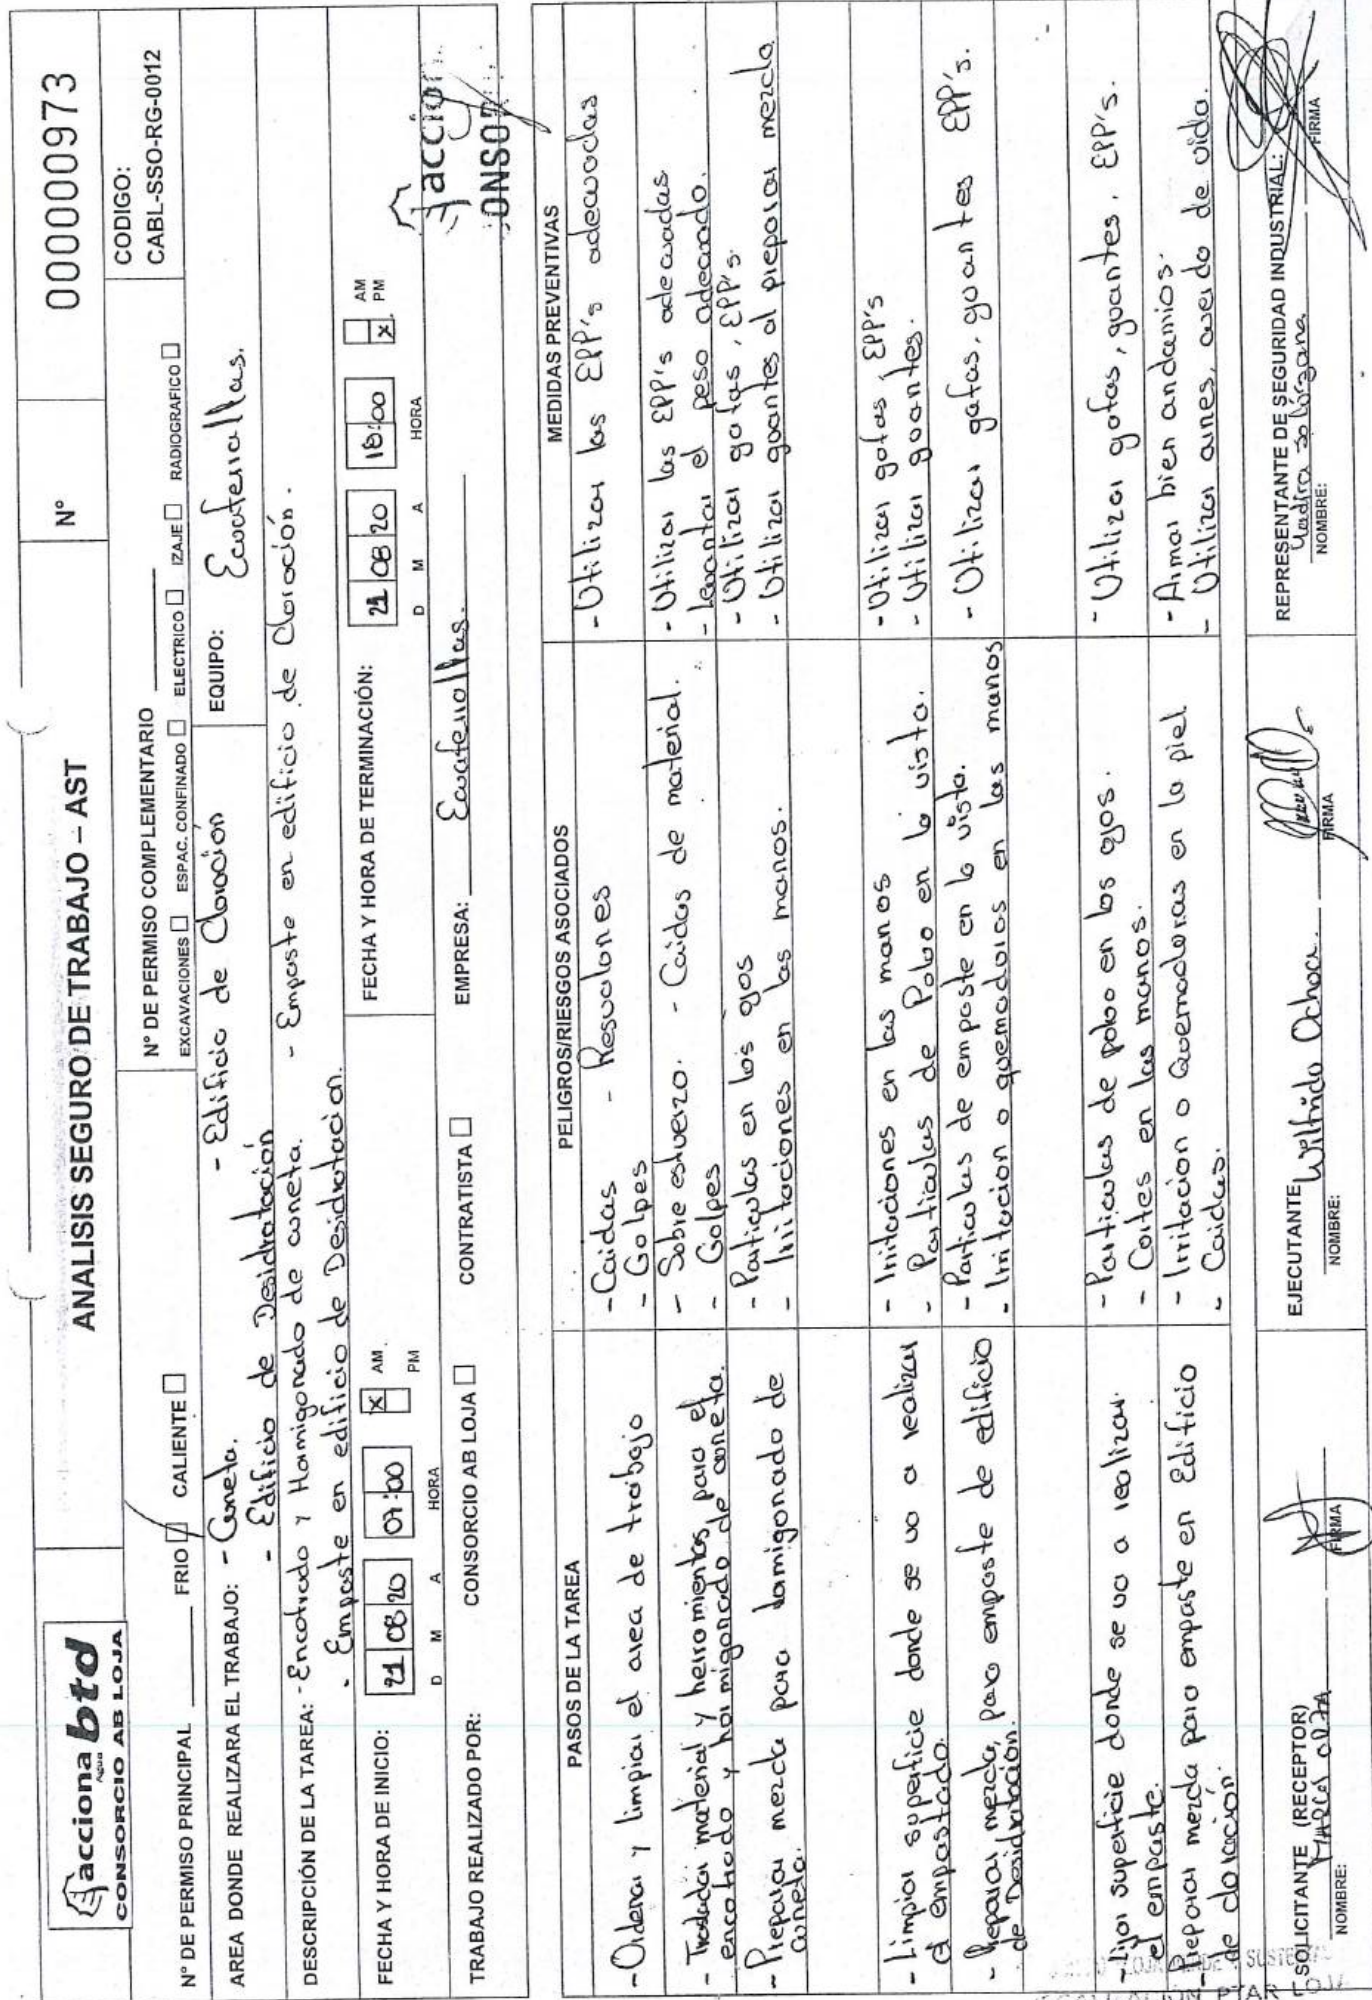 acciona Agua btd
CONSORCIO AB LOJA
ANALISIS SEGURO DE TRABAJO – AST
N° 00000973
N° DE PERMISO PRINCIPAL FRIO CALIENTE
N° DE PERMISO COMPLEMENTARIO
EXCAVACIONES ESPAC. CONFINADO ELECTRICO IZAJE RADIOGRAFICO
CODIGO:
CABL-SSO-RG-0012
AREA DONDE REALIZARA EL TRABAJO: - Cuneta. - Edificio de Cloración
- Edificio de Desidratación
EQUIPO: Ecuaferrallas.
DESCRIPCIÓN DE LA TAREA: - Encofrado y Hormigonado de cuneta. - Empaste en edificio de Cloración.
- Empaste en edificio de Desidratacion.
FECHA Y HORA DE INICIO: 21 08 20 07:00 X AM
PM
D M A HORA
FECHA Y HORA DE TERMINACIÓN: 21 08 20 18:00 AM
X PM
D M A HORA
TRABAJO REALIZADO POR: CONSORCIO AB LOJA CONTRATISTA EMPRESA: Ecuaferrallas.
accion
ONSO
PASOS DE LA TAREA
PELIGROS/RIESGOS ASOCIADOS
MEDIDAS PREVENTIVAS
- Ordenar y limpiar el area de trabajo
- Caidas - Resvalones
- Golpes
- Utilizar los EPP's adecuadas
- Trasladar material y herramientas para el
encofrado y hormigonado de cuneta.
- Sobre esfuerzo. - Caidas de material.
- Golpes
- Utilizar las EPP's adecuadas
- Levantar el peso adecuado.
- Preparar mezcla para hormigonado de
cuneta.
- Particulas en los ojos
- Irritaciones en las manos.
- Utilizar gafas, EPP's.
- Utilizar guantes al preparar mezcla
- Limpiar superficie donde se va a realizar
el empastado.
- Irritaciones en las manos
- Particulas de Polvo en la vista.
- Utilizar gafas, EPP's
- Utilizar guantes.
- Preparar mezcla, para empaste de edificio
de Desidratación.
- Particulas de empaste en la vista.
- Irritacion o quemaduras en las manos
- Utilizar gafas, guantes EPP's.
- Lijar superficie donde se va a realizar
el empaste.
- Particulas de polvo en los ojos.
- Cortes en las manos.
- Utilizar gafas, guantes, EPP's.
- Preparar mezcla para empaste en Edificio
de cloración.
- Irritacion o Quemaduras en la piel
- Caidas.
- Armar bien andamios.
- Utilizar arnes, cuerda de vida.
SOLICITANTE (RECEPTOR)
NOMBRE: FIRMA
EJECUTANTE
NOMBRE: Wilfrido Ochoa. FIRMA
REPRESENTANTE DE SEGURIDAD INDUSTRIAL:
NOMBRE: FIRMA
PTAR LOJA